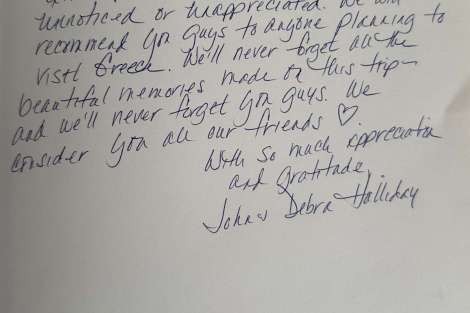 unnoticed or unappreciated. We will
recommend you guys to anyone planning to
visit Greece. We'll never forget all the
beautiful memories made on this trip-
and we'll never forget you guys. We
consider you all our friends ♡.
With so much appreciation
and gratitude,
John & Debra Holliday